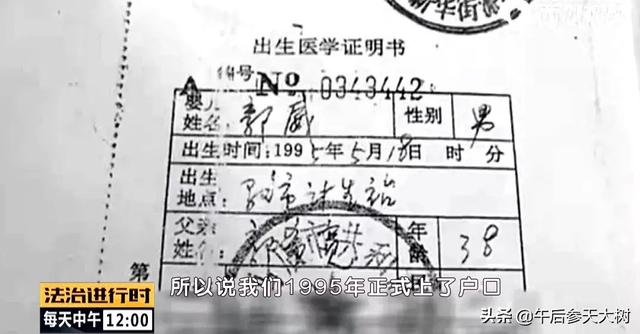 新华街
出生医学证明书
A 编号 № 0343442
婴儿姓名 郭威 性别 男
出生时间:1995年5月18日 时 分
出生地点:
父亲姓名 年龄 38
第
所以说我们1995年正式上了户口
法治进行时
每天中午12:00
头条@午后参天大树